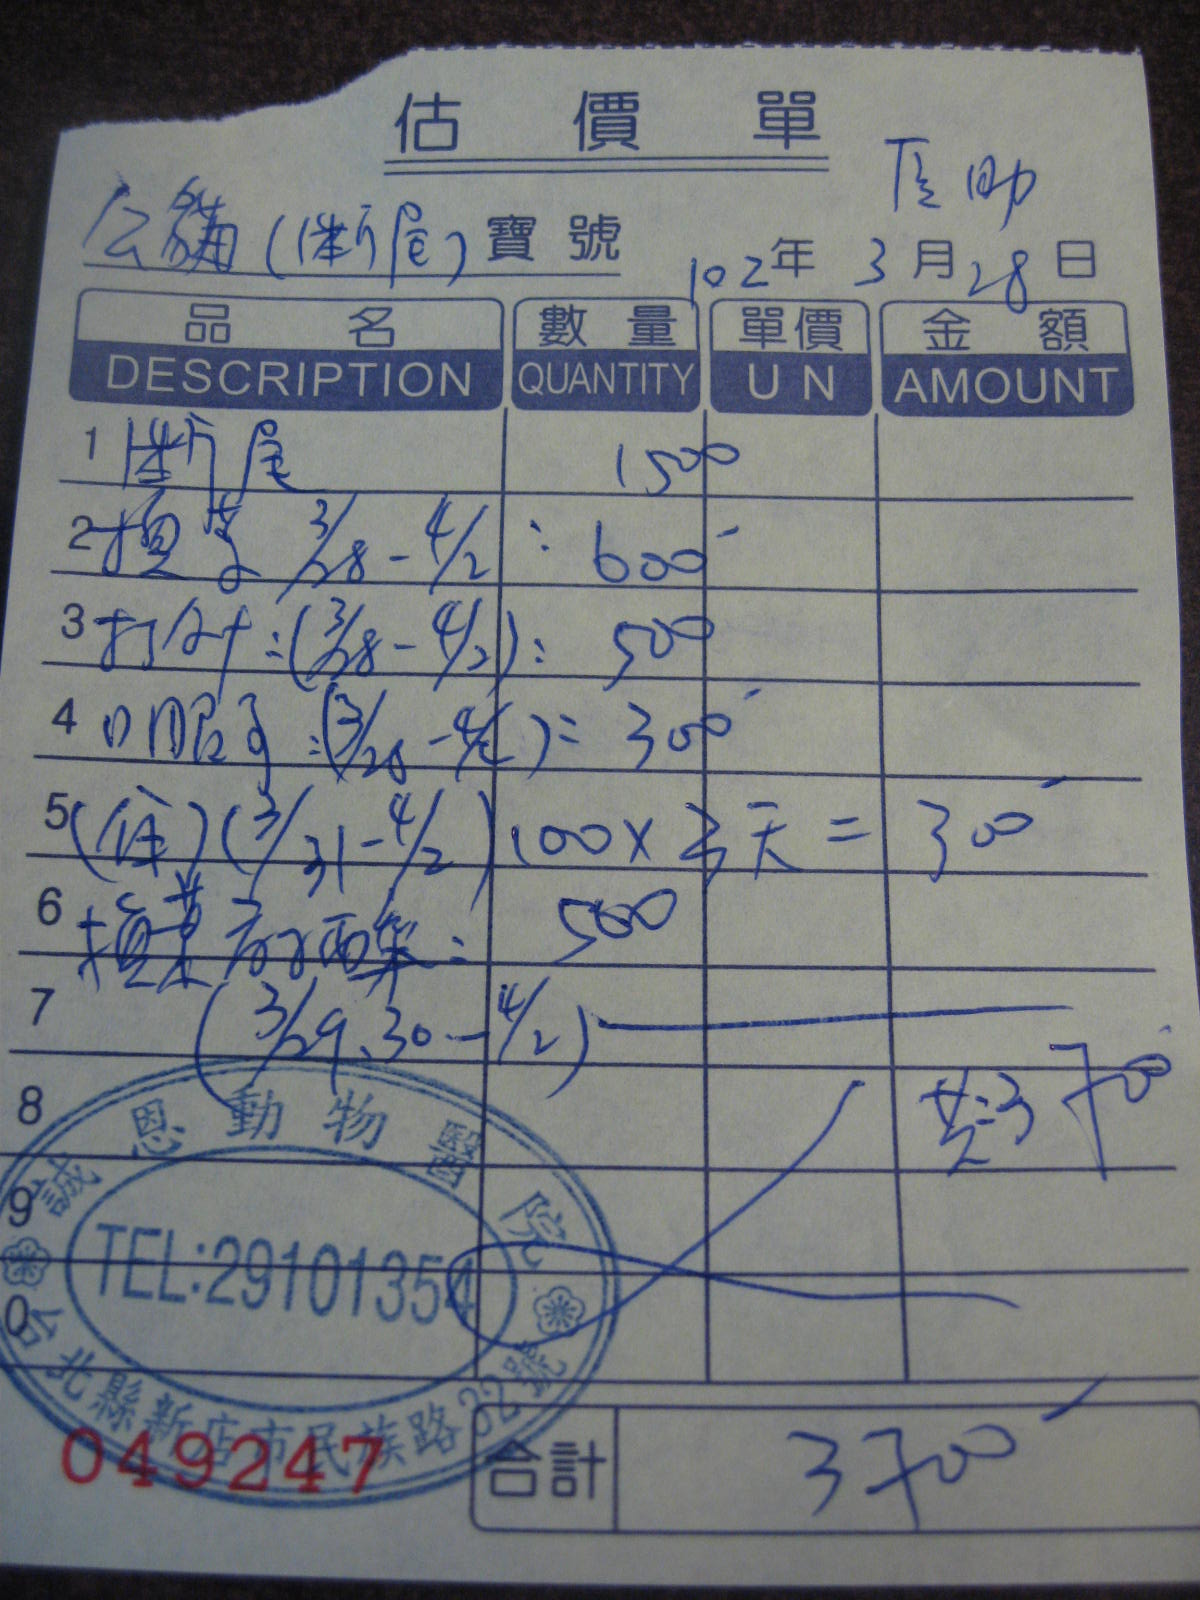 估價單
公貓(断尾)寶號
102年3月28日
品名 數量 單價 金額
DESCRIPTION QUANTITY U N AMOUNT
1 断尾 1500
2 3/28-4/2: 600
3 打針:(3/28-4/2): 500
4 口服 :(3/28-4/2)= 300
5 (住)(3/31-4/2) 100x3天= 300
6 換藥 : 500
7 (3/29、30-4/2)
8 共:3700
9
0
誠恩動物醫院
TEL:29101354
台北縣新店市民族路32號
049247
合計 3700